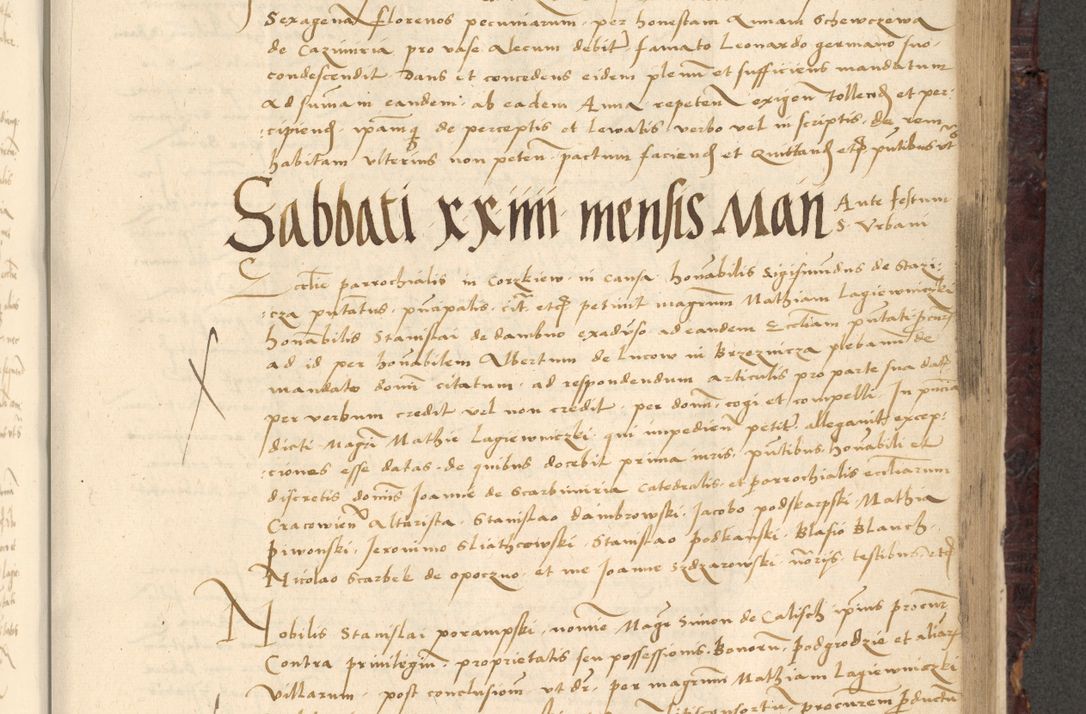 Sexagena florenos pecuniarum per honestam Annam Schewczewa
de Cazimiria pro vase alecum debit famato Leonardo germano suo
condescendit dans et concedens eidem plenum et sufficiens mandatum
ad sumam eandem ab eadem Anna repeten exigen tollend et per-
cipiend ipamq de perceptis et lewatis verbo vel in scriptis de rem
habitam ulterius non peten pactum faciend et quittand etc pntibus ut s
Sabbati xxiiii mensis Maii Ante festum
S. Urbani
Ecclie parrochialis in Corzkiew in causa honabilis Sigismundus de Stazi-
cza pntatus principalis cit etc petiuit magrum Mathiam Lagiewniczki
honabilis Stanislai de dambno exaduso ad eandem Eccliam pntati
ad id per honabilem Albertum de lucow in Brzeznicza plebanum de
mandato domini citatum ad respondendum articulis pro parte sua datis
per verbum credit vel non credit per domn cogi et compelli In pntia
dicti Magri Mathie Lagiewniczki qui impedien petit allegauit excep-
ciones esse datas de quibus docebit prima iuris pntibus honabili et
discretis domis Ioanne de Scarbimiria Catedralis et parrochialis ecclliarum
Cracowien Altarista Stanislao dambrowski Jacobo podskarpski Mathia
Piwonski Ieronimo Sliathcowski Stanislao podkanski Blasio Blanch
Nicolao Scarbek de opoczno et me Ioanne Szdzarowski noriis testibus etc
Nobilis Stanislai porampski nomine Magr Simon de Calisch ipius procur
Contra priuilegium proprietatis seu possessionis Bonorum Podgrodzie et aliarum
villarum post conclusiom ut dr per magrum Mathiam Lagiewniczki
procurem productum